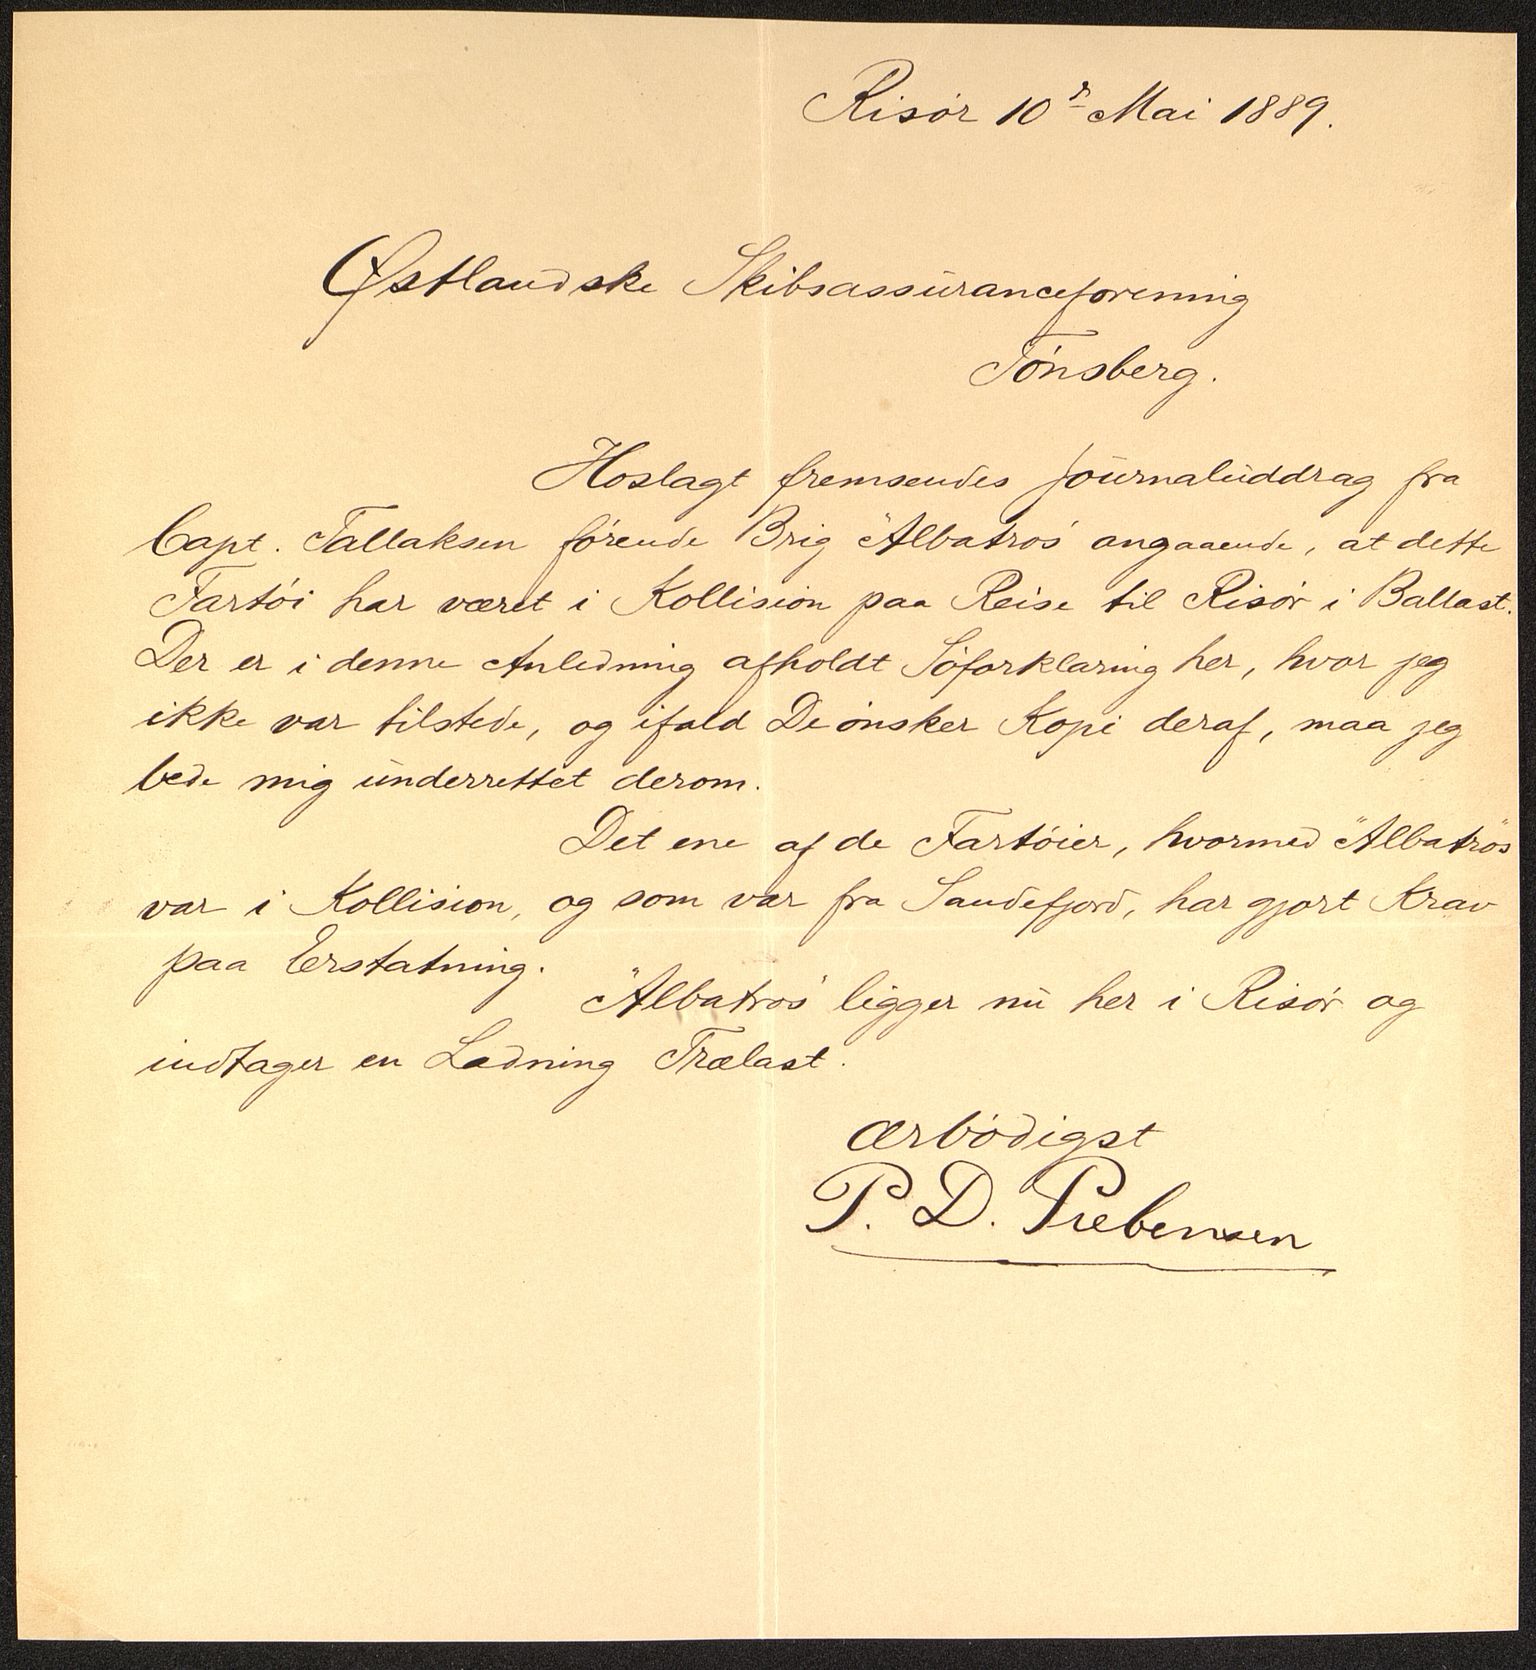 Risør 10r Mai 1889.
Østlandske Skibsassuranceforening
Tønsberg.
Hoslagt fremsendes Journaluddrag fra
Capt. Tallaksen førende Brig "Albatros" angaaende, at dette
Fartøi har været i Kollision paa Reise til Risør i Ballast.
Der er i denne Anledning afholdt Søforklaring her, hvor jeg
ikke var tilstede, og ifald De ønsker Kopi deraf, maa jeg
bede mig underrettet derom.
Det ene af de Fartøier, hvormed "Albatros"
var i Kollision, og som var fra Sandefjord, har gjort Krav
paa Erstatning.
"Albatros" ligger nu her i Risør og
indtager en Ladning Trælast.
ærbødigst
P. D. Prebensen